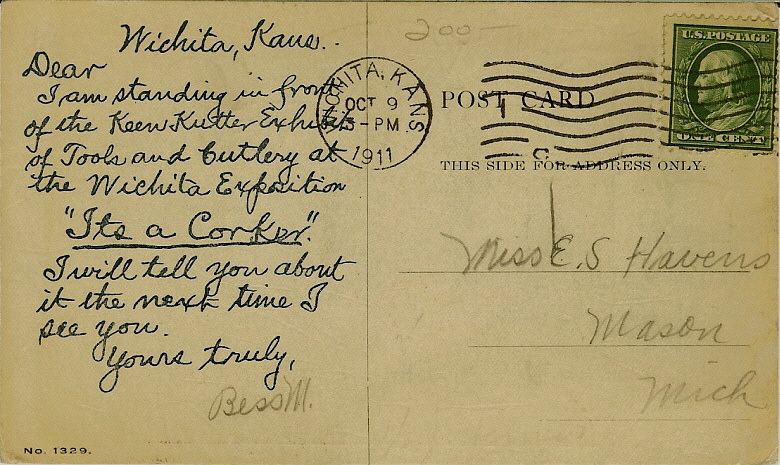 Wichita, Kans.
Dear
I am standing in front
of the Keen Kutter Exhibits
of Tools and Cutlery at
the Wichita Exposition
"Its a Corker".
I will tell you about
it the next time I
see you.
Yours truly,
Bess M.
No. 1329.
200-
WICHITA, KANS.
OCT 9
3-PM
1911
U.S. POSTAGE
ONE CENT
POST CARD
THIS SIDE FOR ADDRESS ONLY.
Miss E. S Havens
Mason
Mich